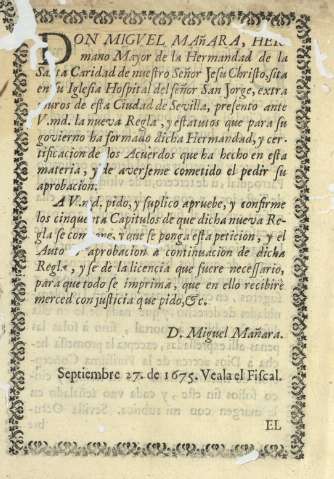 DON MIGVEL MAñARA, HER-
mano Mayor de la Hermandad de la
Santa Caridad de nuestro Señor Jesu Christo, sita
en su Iglesia Hospital del señor San Jorge, extra
muros de esta Ciudad de Sevilla, presento ante
V.md. la nueva Regla, y estatutos que para su
govierno ha formado dicha Hermandad, y cer-
tificacion de los Acuerdos que ha hecho en esta
materia, y de averseme cometido el pedir su
aprobacion.
A V.md. pido, y suplico apruebe, y confirme
los cinquenta Capitulos de que dicha nueva Re-
gla se contiene, y que se ponga esta peticion, y el
Auto aprobacion à continuacion de dicha
Regla, y se de la licencia que fuere necessario,
para que todo se imprima, que en ello recibirè
merced con justicia que pido, &c.
D. Miguel Mañara.
Septiembre 27. de 1675. Veala el Fiscal.
EL